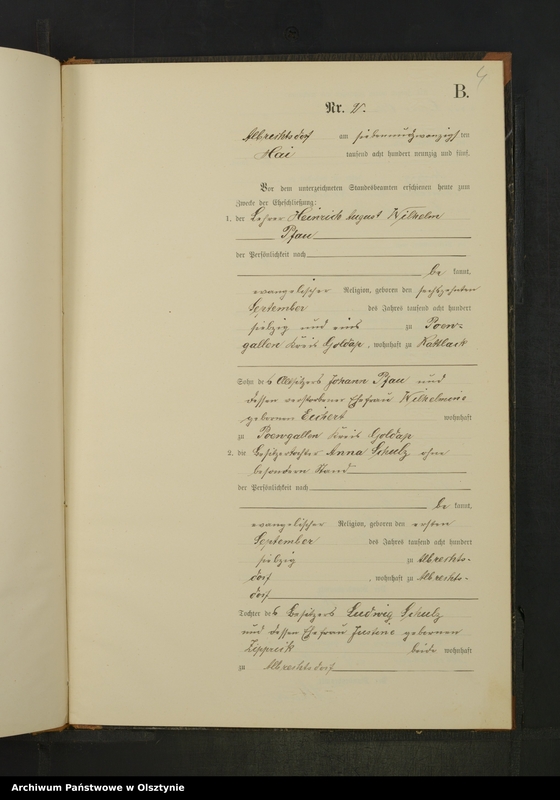 4
B.
Nr. 4.
Albrechtsdorf am siebenundzwanzigsten
Mai tausend acht hundert neunzig und fünf.
Vor dem unterzeichneten Standesbeamten erschienen heute zum
Zwecke der Eheschließung:
1. der Lehrer Heinrich August Wilhelm
Pfau
der Persönlichkeit nach
be kannt,
evangelischer Religion, geboren den sechszehnten
September des Jahres tausend acht hundert
siebzig und eins zu
gallen Kreis Goldap, wohnhaft zu Kattlack
Sohn des Altsitzers Johann Pfau und
dessen verstorbener Ehefrau Wilhelmine
geborenen Eckert wohnhaft
zu Kreis Goldap
2. die Besitzertochter Anna Schulz ohne
besondern Stand
der Persönlichkeit nach
be kannt,
evangelischer Religion, geboren den ersten
September des Jahres tausend acht hundert
siebzig zu Albrechts-
dorf, wohnhaft zu Albrechts-
dorf
Tochter des Besitzers Ludwig Schulz
und dessen Ehefrau Justine geborenen
beide wohnhaft
zu Albrechtsdorf
Archiwum Państwowe w Olsztynie